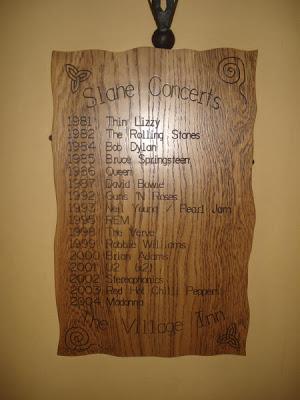 Slane Concerts
1981 Thin Lizzy
1982 The Rolling Stones
1984 Bob Dylan
1985 Bruce Springsteen
1986 Queen
1987 David Bowie
1992 Guns 'N Roses
1993 Neil Young / Pearl Jam
1995 REM
1998 The Verve
1999 Robbie Williams
2000 Brian Adams
2001 U2 (x2)
2002 Stereophonics
2003 Red Hot Chilli Peppers
2004 Madonna
The Village Inn